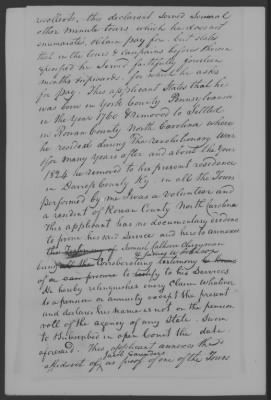 recollects, this declarant served several
other minute tours which he does not
enumerate, obtain pay for. but states
that in the tours & campaigns before
specified he served faithfully fourteen
months & upwards. for which he asks
for pay. This applicant States that he
was born in York County Pennsylvania
in the year 1760. & removed to & settled
in Rowan County North Carolina where
he resided during the revolutionary war
& for many years after and about the year
1824 he removed to his present residence
in County Ky. in all the Tours
performed by me I was a volunteer and
a resident of Rowan County North Carolina
This applicant has no documentary evidence
to prove his said service and here to annexes
the Testimony of Samuel Clergyman
being the corroborating testimony
of a to his services
He hereby relinquishes every claim whatever
to a pension or annuity except the present
and declares his name is not on the pension
roll of the agency of any State. Sworn
to & Subscribed in open Court the date
aforesaid. This applicant annexes the
affidavit of Jacob Saunders as proof of one of the Tours